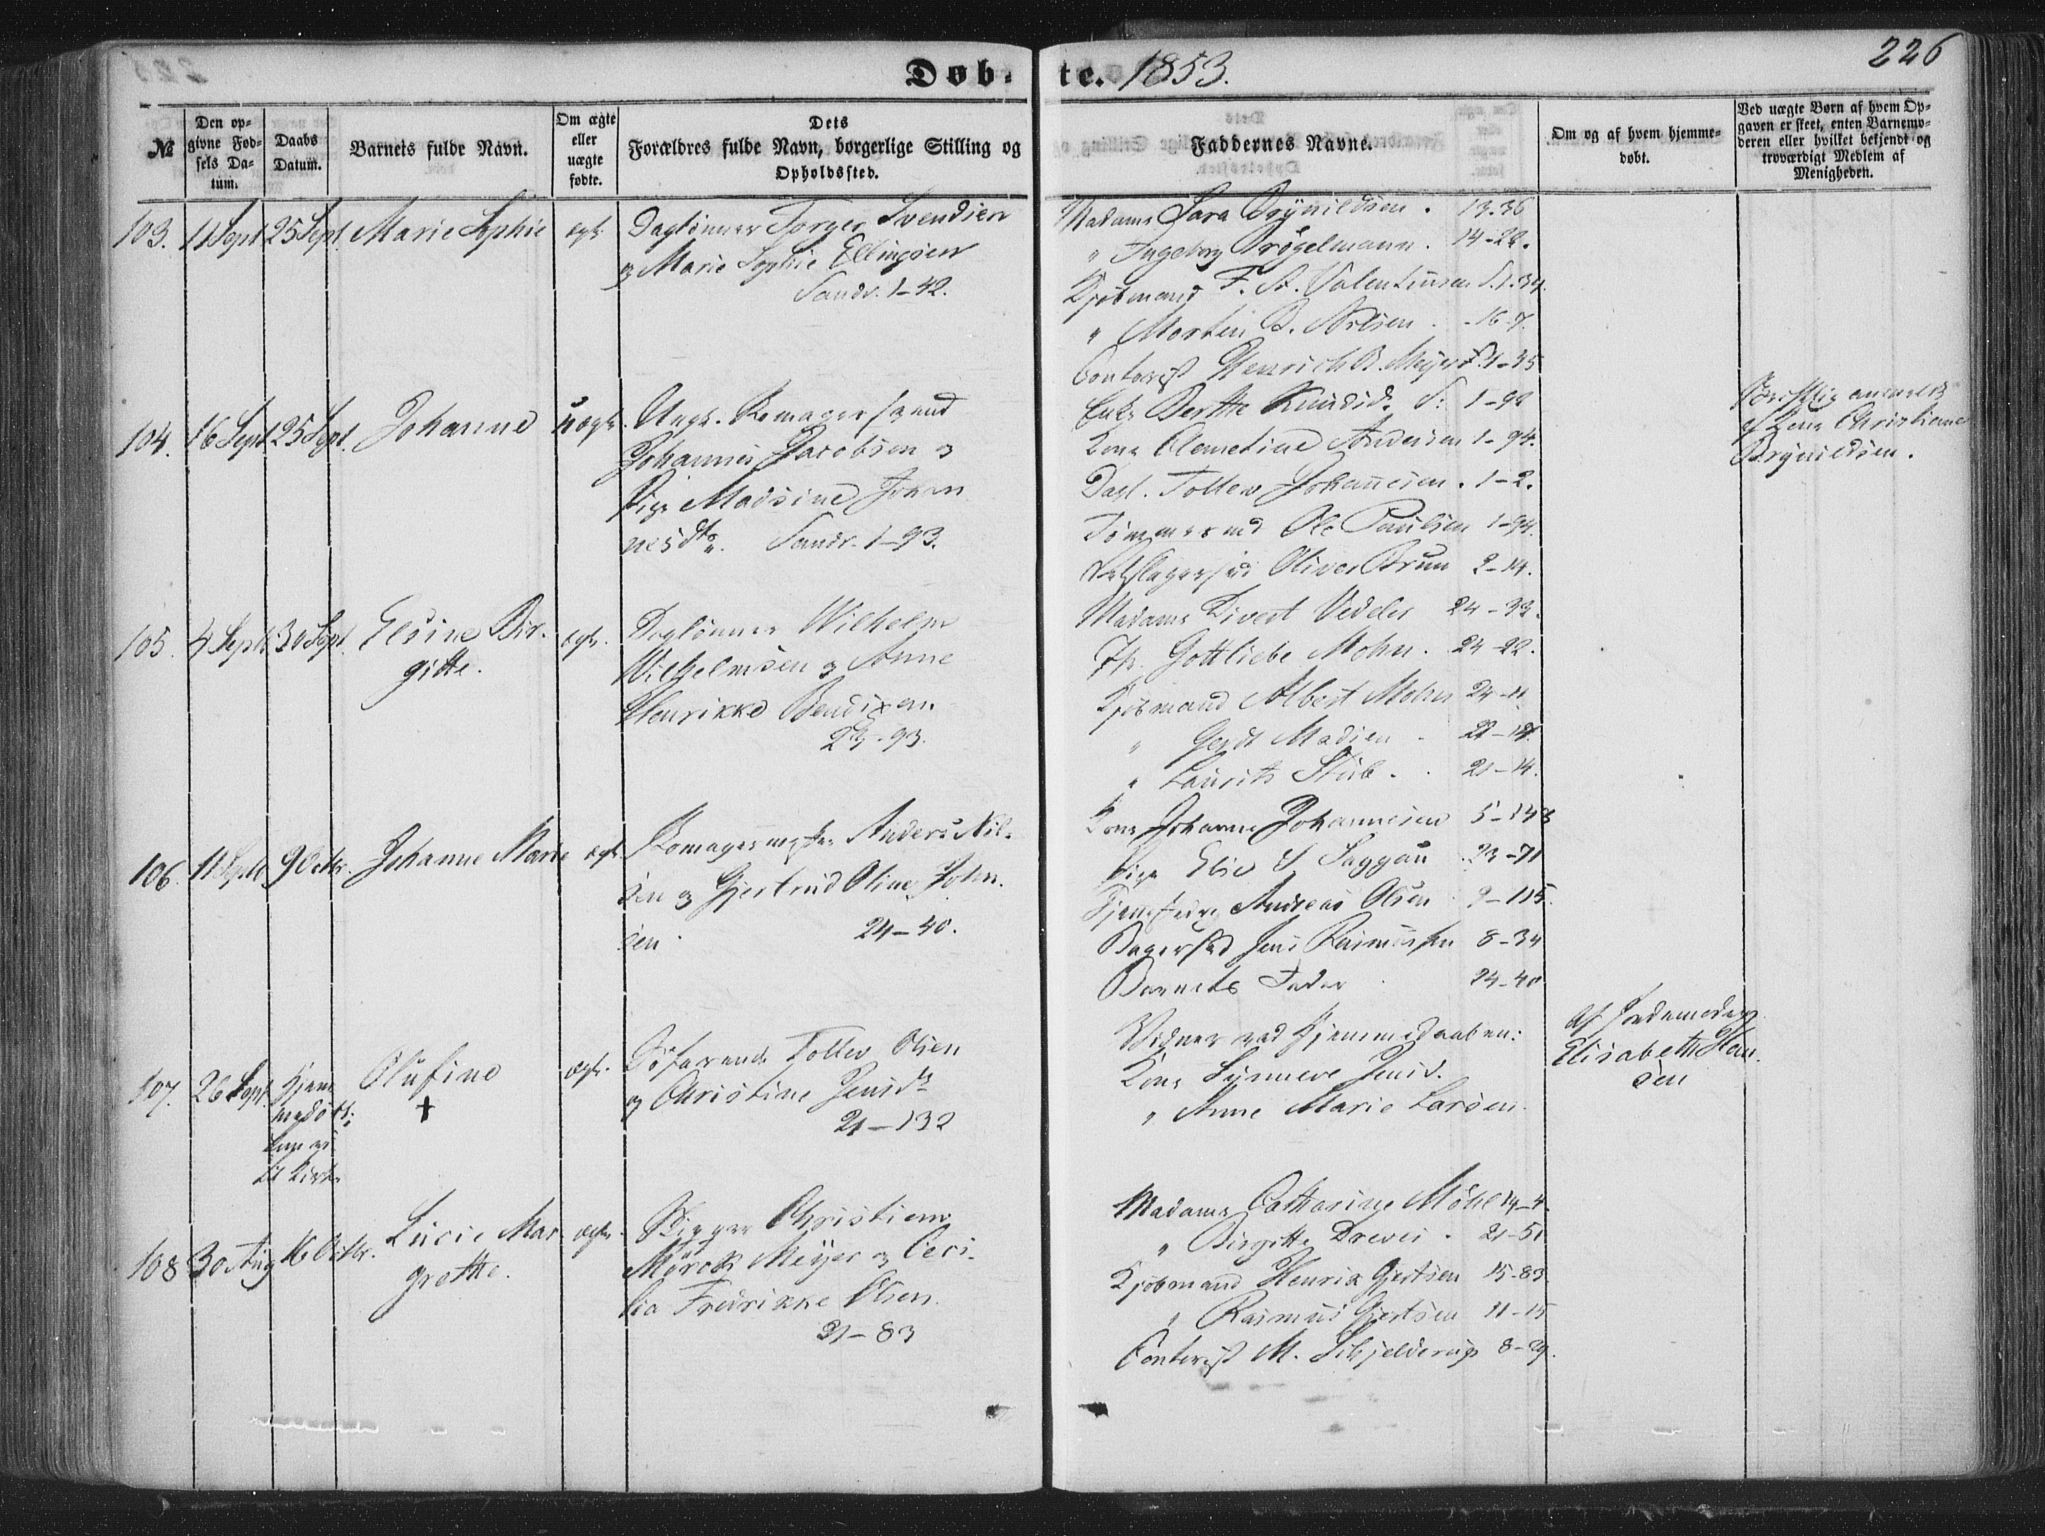 Døbte. 1853.
226
№
Den opgivne Fødsels Datum.
Daabs Datum.
Barnets fulde Navn.
Om ægte eller uægte fødte.
Dets Forældres fulde Navn, borgerlige Stilling og Opholdssted.
Faddernes Navne.
Om og af hvem hjemmedøbt.
Ved uægte Børn af hvem Opgaven er skeet, enten Barnemoderen eller hvilket bekjendt og troværdigt Medlem af Menigheden.
103. 11 Sept 25 Sept. Marie Sophie ægte
Daglønner Torger Svendsen
og Marie Sophie Ellingsen
Sandv. 1-42.
Madame Sara Brynildsen. 13.36
" Ingeborg Prögelmann. 14-22.
Kjøbmand F. A. Valentinsen S. 1.34.
" Martin B. Nilsen. 16-7.
Contorist Henrich B. Meyer S. 1-35
104. 16 Sept 25 Sept. Johanne uægte.
Ungk.
Johannes Jacobsen og
Pige Madsine Johan
nesdtr. Sandv. 1-93.
Enke Berthe Knudsd. S: 1-92
Kone Clemetine Andersen 1-94.
Dagl. Tollev Johannesen. 1-2.
Tømmermd Ole Paulsen 1-94.
Oliver Brun 2-14.
af Kone Christiane
Brynildsen.
105. 4 Sept. 30 Sept. Elsine Bir-
gitte.
ægte.
Daglønner Wilhelm
Wilhelmsen og Anne
Henrikke Bendixen.
23-93.
Madame Sivert Vedeler 24-33.
Fr. Gottliebe Mohn. 24-22.
Kjøbmand Albert Mohn 24-11
" Gerdt Madsen. 22-12.
" Laurits Stub. 21-14.
106. 11 Sept 9 Octbr. Johanne Marie ægte
Anders Nil-
sen og Gjertrud Oline John-
sen. 24-40.
Kone Johanne Johannesen 5-148
Pige Elsie S Saggau 23-71
Andreas Olsen 9-115.
Bagersvd Jens Rasmussen 8-34
Barnets Fader 24-40
107. 26 Sept. Hjem
medøbt;
til Kirke
Olufine
+
ægte.
Søfarende Tollev Olsen
og Christine Jensdtr
21-132
Vidner ved Hjemmedaaben:
Kone Synneve Jensd.
" Anne Marie Larsen.
af Jordemoder
Elisabeth Han
sen
108 30 Aug 16 Octbr. Lucie Mar
grethe.
ægte.
Christian
Mørch Meyer og Ceci-
lia Fredrikke Olsen.
21-83
Madame Catharine Möhl 14-4.
" Birgitte Drewes. 21-51
Kjøbmand Henrik Gjertsen 15-83.
" Rasmus Gjertsen 11-15
Contorist M. Schjelderup 8-29.